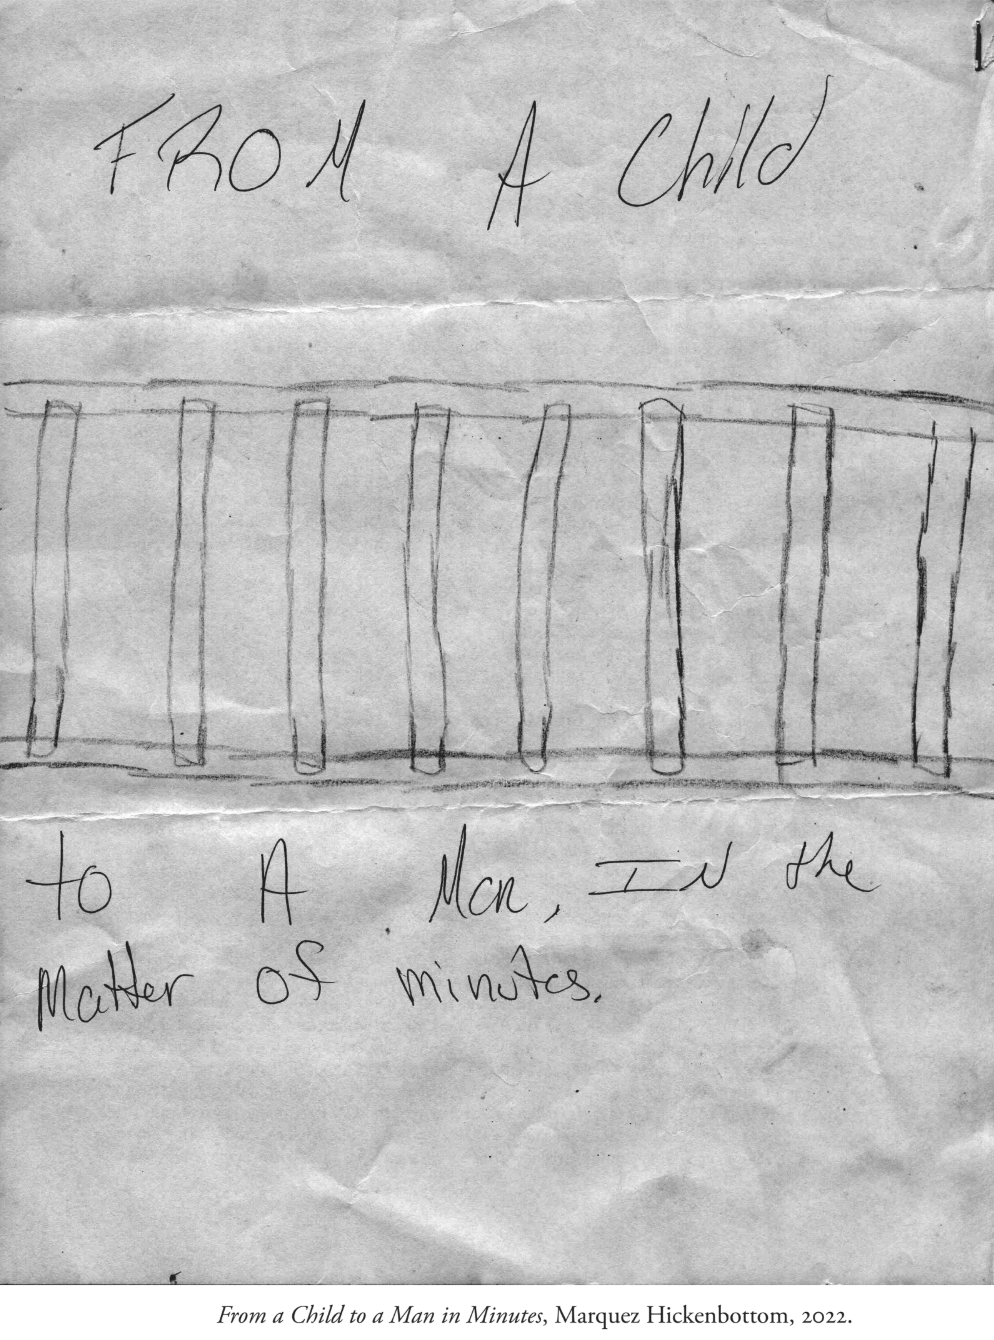 FROM A Child
to A Man, IN the
Matter of minutes.
From a Child to a Man in Minutes, Marquez Hickenbottom, 2022.